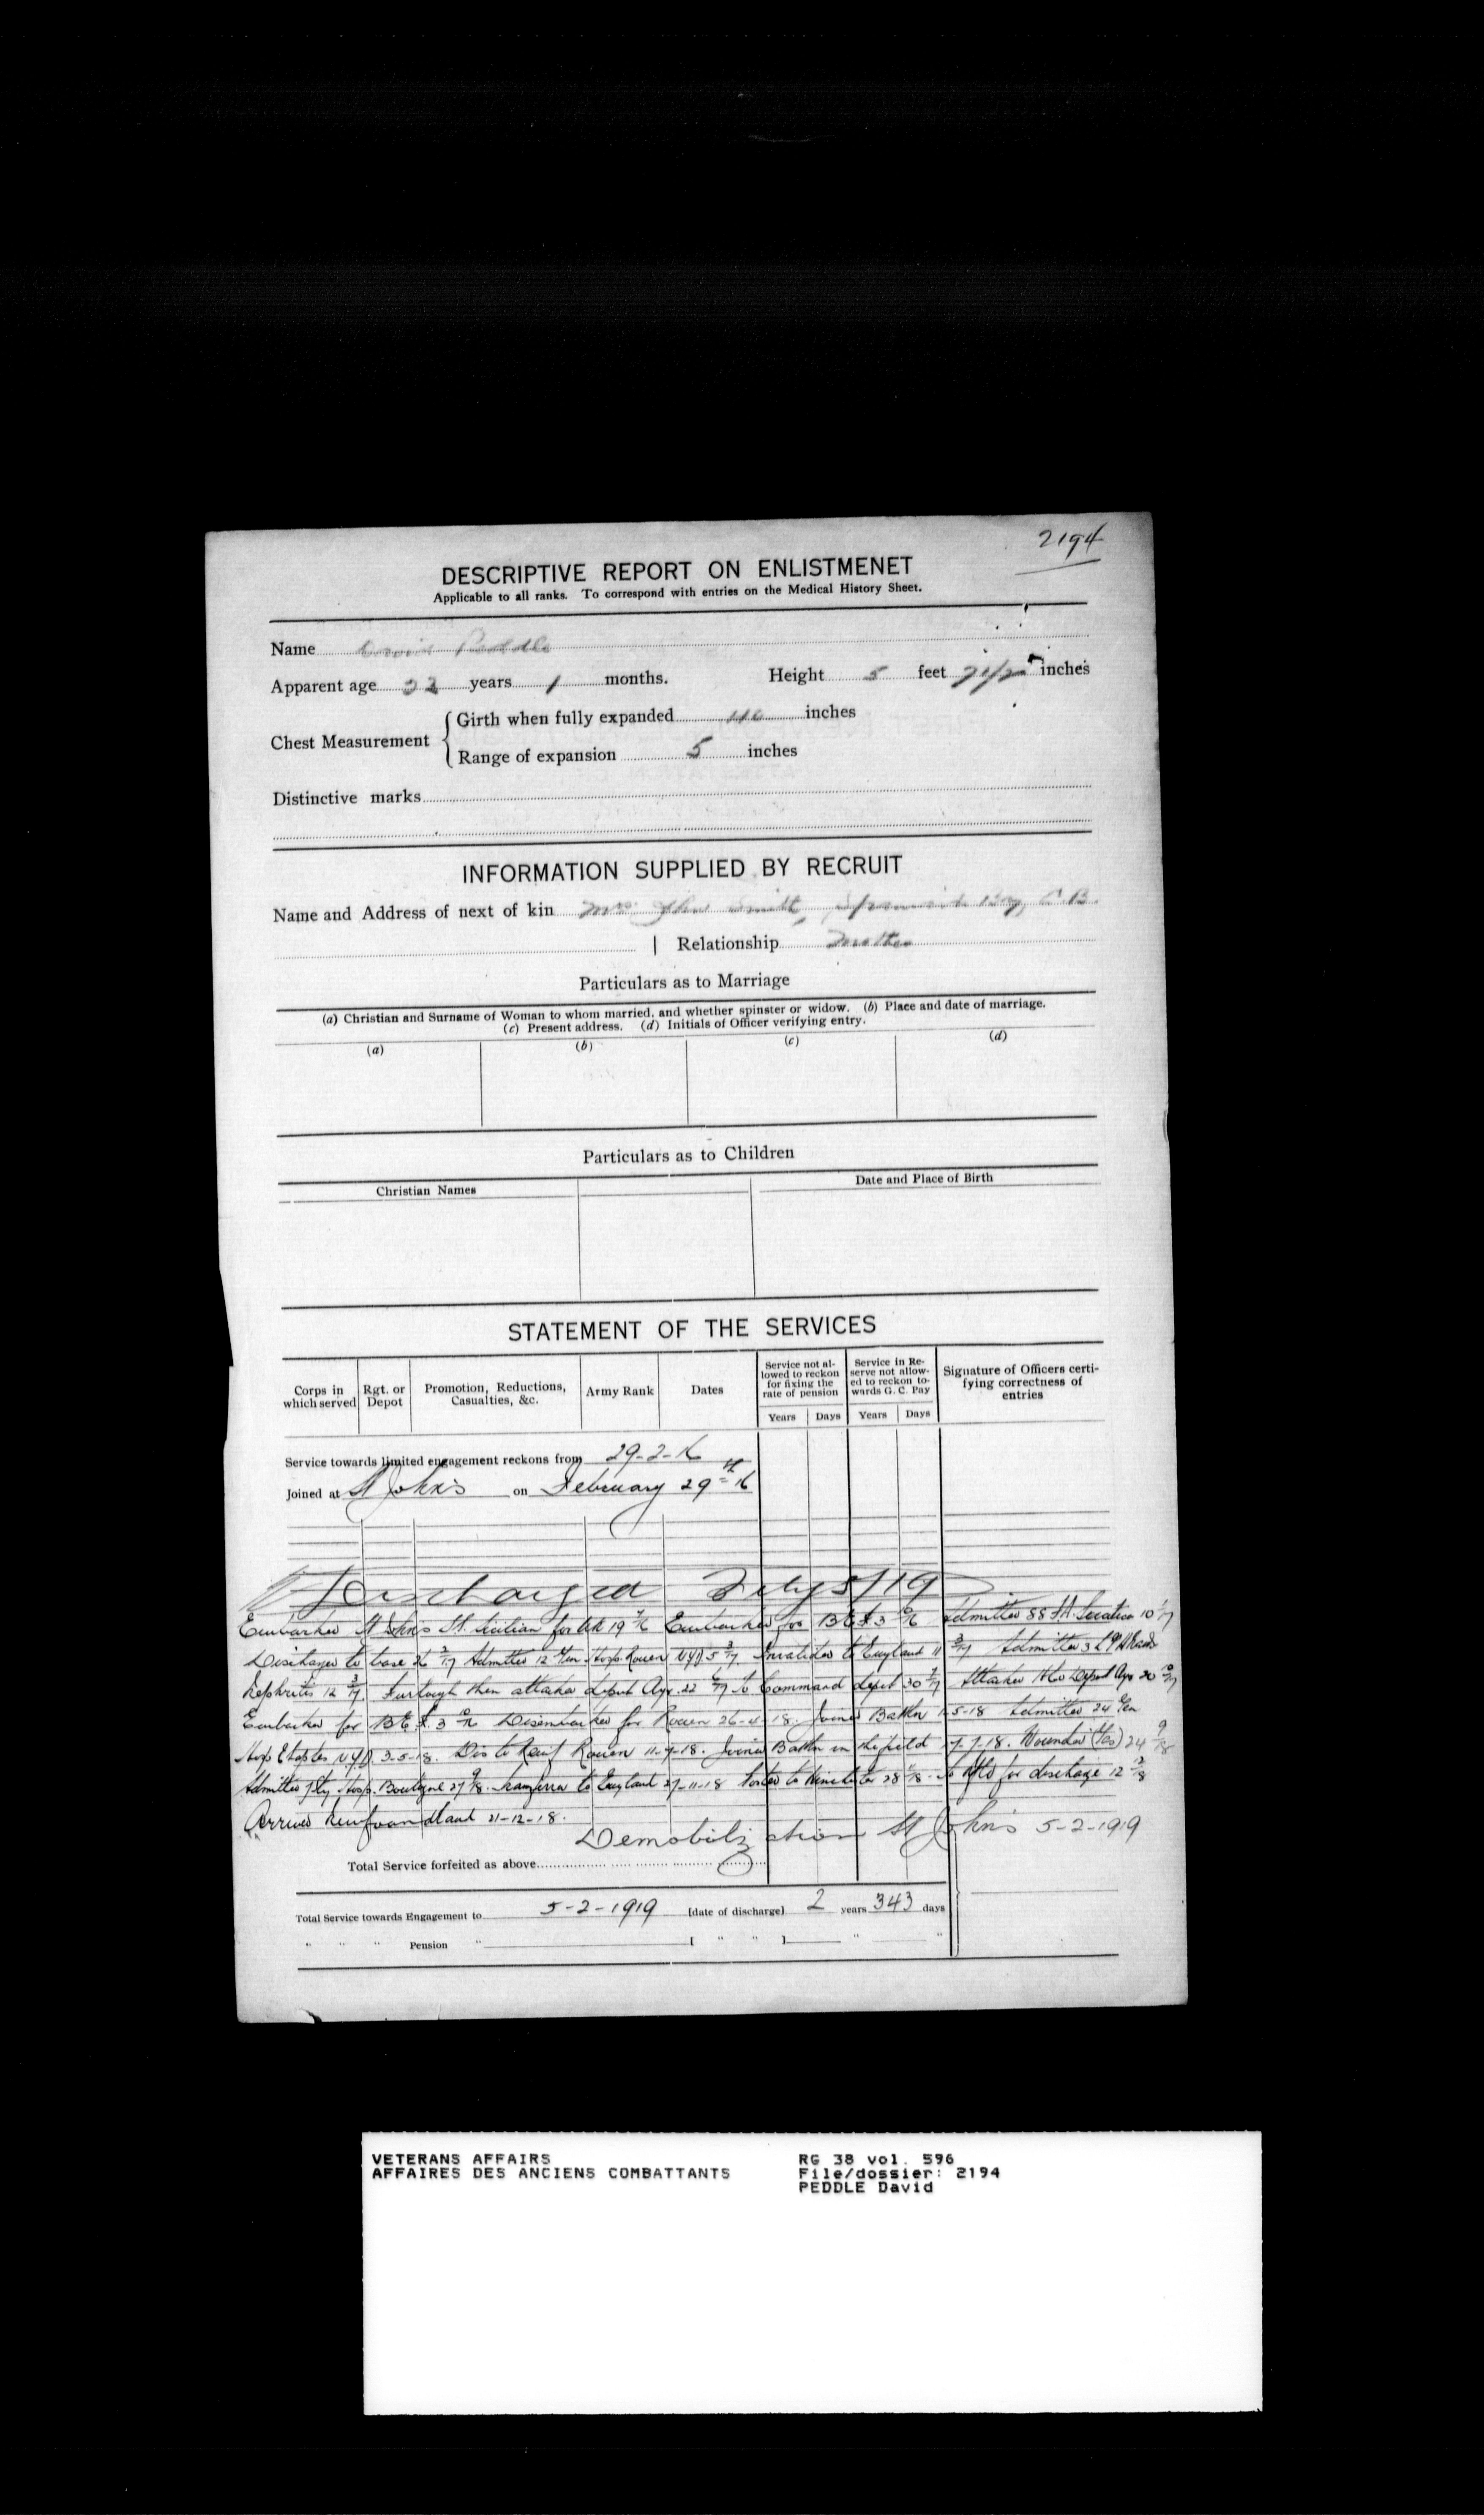 2194
DESCRIPTIVE REPORT ON ENLISTMENET
Applicable to all ranks. To correspond with entries on the Medical History Sheet.
Name David Peddle
Apparent age 22 years 1 months. Height 5 feet 7 1/2 inches
Chest Measurement
Girth when fully expanded 40 inches
Range of expansion 5 inches
Distinctive marks
INFORMATION SUPPLIED BY RECRUIT
Name and Address of next of kin Mrs. John Smith, Spaniard's Bay, C.B.
Relationship Mother
Particulars as to Marriage
(a) Christian and Surname of Woman to whom married, and whether spinster or widow. (b) Place and date of marriage.
(c) Present address. (d) Initials of Officer verifying entry.
(a) (b) (c) (d)
Particulars as to Children
Christian Names Date and Place of Birth
STATEMENT OF THE SERVICES
Corps in which served Rgt. or Depot Promotion, Reductions, Casualties, &c. Army Rank Dates Service not allowed to reckon for fixing the rate of pension Service in Reserve not allowed to reckon towards G. C. Pay Signature of Officers certifying correctness of entries
Years Days Years Days
Service towards limited engagement reckons from 29-2-16
Joined at St John's on February 29th 16
Discharged Feby 5/19
Embarked St John's St. Sicilian for UK 19 7/16 Embarked for BEF 3 Admitted 88 F.A. 10 1/17
Discharged to base 26 2/17 Admitted 12 Gen Hosp Rouen NYD 5 3/17. Invalided to England 11 3/17 Admitted 3
Nephritis 12 3/17 Furlough then attached depot Ayr 22 6/17 to Command depot 30 7/17 Attached HQ Depot Ayr 20 10/17
Embarked for BEF 3 Disembarked for Rouen 26-4-18. Joined Battn 1-5-18 Admitted 24 Gen
Hosp Etaples NYD. 3-5-18. Dis to Reinf Rouen 11-7-18. Joined Battn in the field 17-7-18. Wounded 24 9/18
Admitted 7 Sty. Hosp. Boulogne 27 9/18. Transferred to England 27-11-18 Posted to Winchester 28 11/18 to Nfld for discharge 12 12/18
Arrived Newfoundland 21-12-18.
Demobilization St John's 5-2-1919
Total Service forfeited as above
Total Service towards Engagement to 5-2-1919 [date of discharge] 2 years 343 days
" " " Pension " [ " " ] " "
VETERANS AFFAIRS RG 38 vol. 596
AFFAIRES DES ANCIENS COMBATTANTS File/dossier: 2194
PEDDLE David